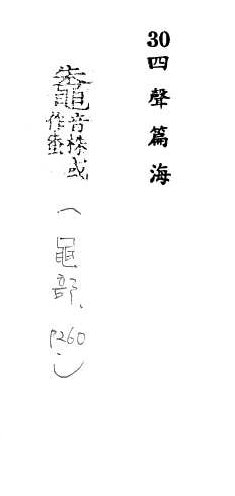 30四聲篇海
音株或
作
（黽部、P260）